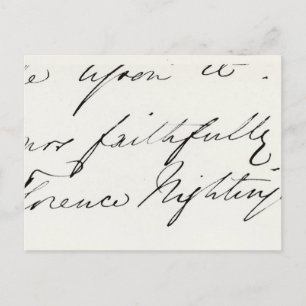 e upon it.
urs faithfully
lorence Nighting